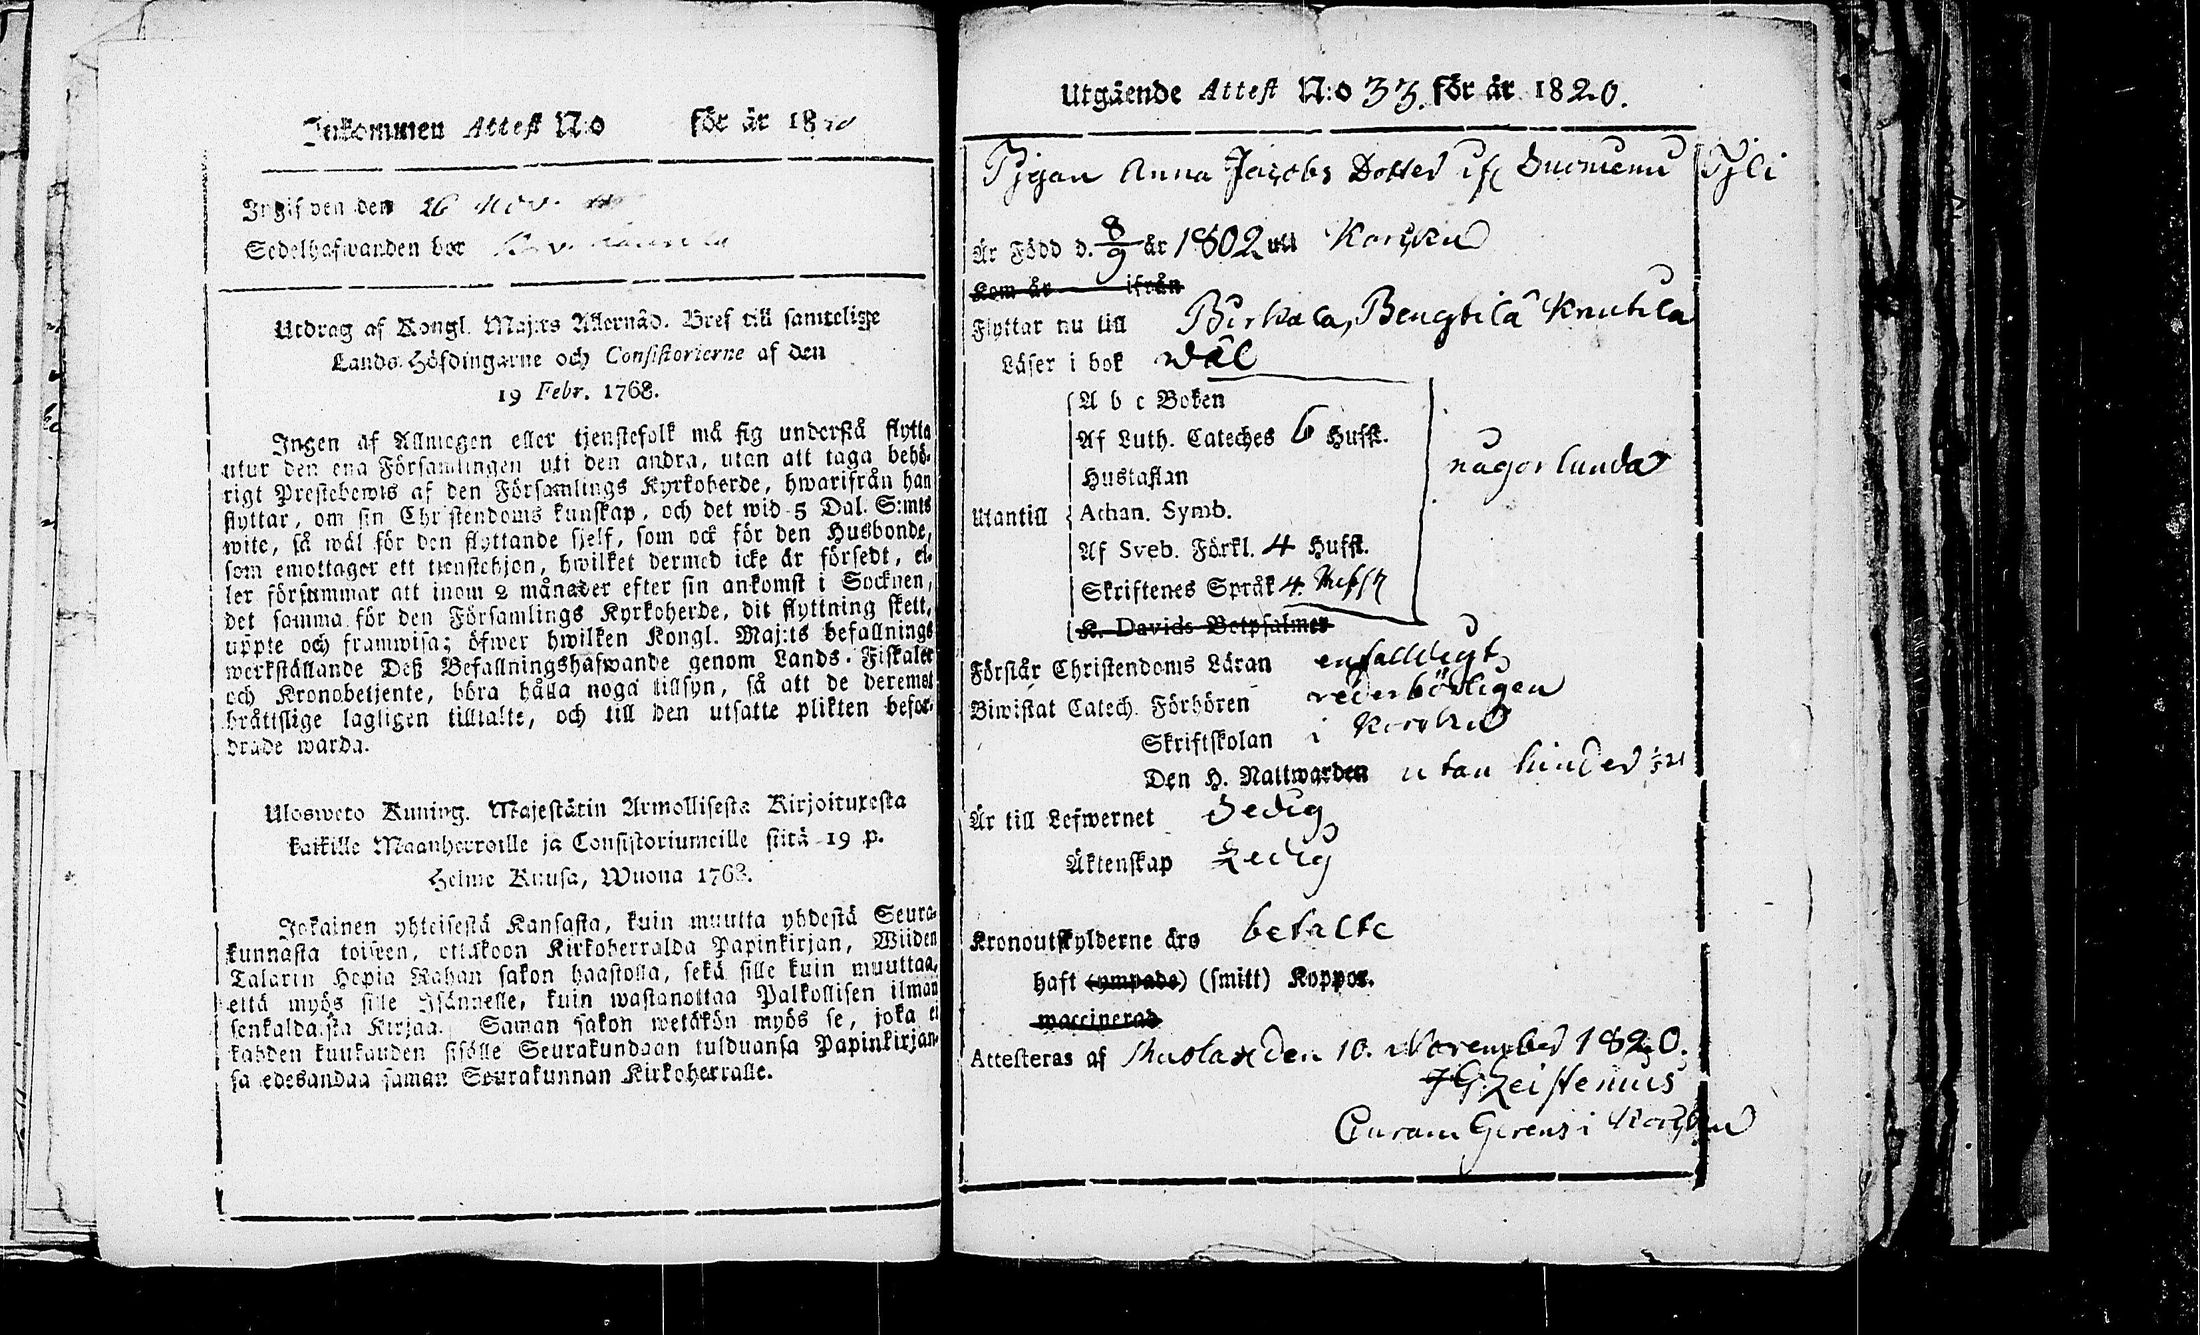 Inkommen Attest N:o för är 1820
Ingifven den 26 Nov.
Sedelhafwanden bor
Utdrag af Kongl. Maj:ts Allernåd. Bref till samtelige
Lands-Höfdingarne och Consistorierne af den
19 Febr. 1768.
Ingen af Allmogen eller tjenstefolk må sig understå flytta
utur den ena Församlingen uti den andra, utan att taga behö-
rigt Prestebewis af den Församlings Kyrkoherde, hwarifrån han
flyttar, om sin Christendoms kunskap, och det wid 5 Dal. S:mts
wite, så wäl för den flyttande sjelf, som ock för den Husbonde,
som emottager ett tjenstehjon, hwilket dermed icke är försedt, el-
ler försummar att inom 2 månader efter sin ankomst i Socknen,
det samma för den Församlings Kyrkoherde, dit flyttning skett,
uppte och framwisa; öfwer hwilken Kongl. Maj:ts befallnings
werkställande Deß Befallningshafwande genom Lands-Fiskaler
och Kronobetjente, böra hålla noga tillsyn, så att de deremot
bråttslige lagligen tilltalte, och till den utsatte plikten befor-
drade warda.
Ulosweto Kuning. Majestätin Armollisesta Kirjoituxesta
kaikille Maanherroille ja Consistoriumeille siitä 19 p.
Helme Kuusa, Wuona 1768.
Jokainen yhteisestä Kansasta, kuin muutta yhdestä Seura-
kunnasta toiseen, ottakoon Kirkoherralda Papinkirjan, Wiiden
Talarin Hopia Rahan sakon haastolla, sekä sille kuin muuttaa,
että myös sille Isännelle, kuin wastanottaa Palkollisen ilman
senkaldaista Kirjaa. Saman sakon wetäkön myös se, joka ei
kahden kuukauden sisälle Seurakundaan tulduansa Papinkirjan-
sa edesandaa saman Seurakunnan Kirkoherralle.
Utgäende Attest N:o 33. för är 1820.
Pigan Anna Jacobs Dotter ifr Suomenu Pyli
Är Född d. 8/9 är 1802 uti Karkku
Kom är ifrån
Flyttar nu till Birkala, Bengtilä Knutila
Läser i bok wäl
A b c Boken
Af Luth. Cateches 6 Hufst.
någorlunda
Hustaflan
Utantill Athan. Symb.
Af Sveb. Förkl. 4 Hufst.
Skriftenes Språk 4. Hufst
K. Davids Botpsalmer
Förstår Christendoms Läran enfaldigt
Biwistat Catech. Förhören wederbörligen
Skriftskolan i Karkku
Den H. Nattwarden utan hinder
Är till Lefwernet Sedig
Äktenskap Ledig
Kronoutskylderne äro betalte
haft (ympade) (smitt) Koppor.
waccinerad
Attesteras af Muola den 10. November 1820.
Curam Gerens i Karkku